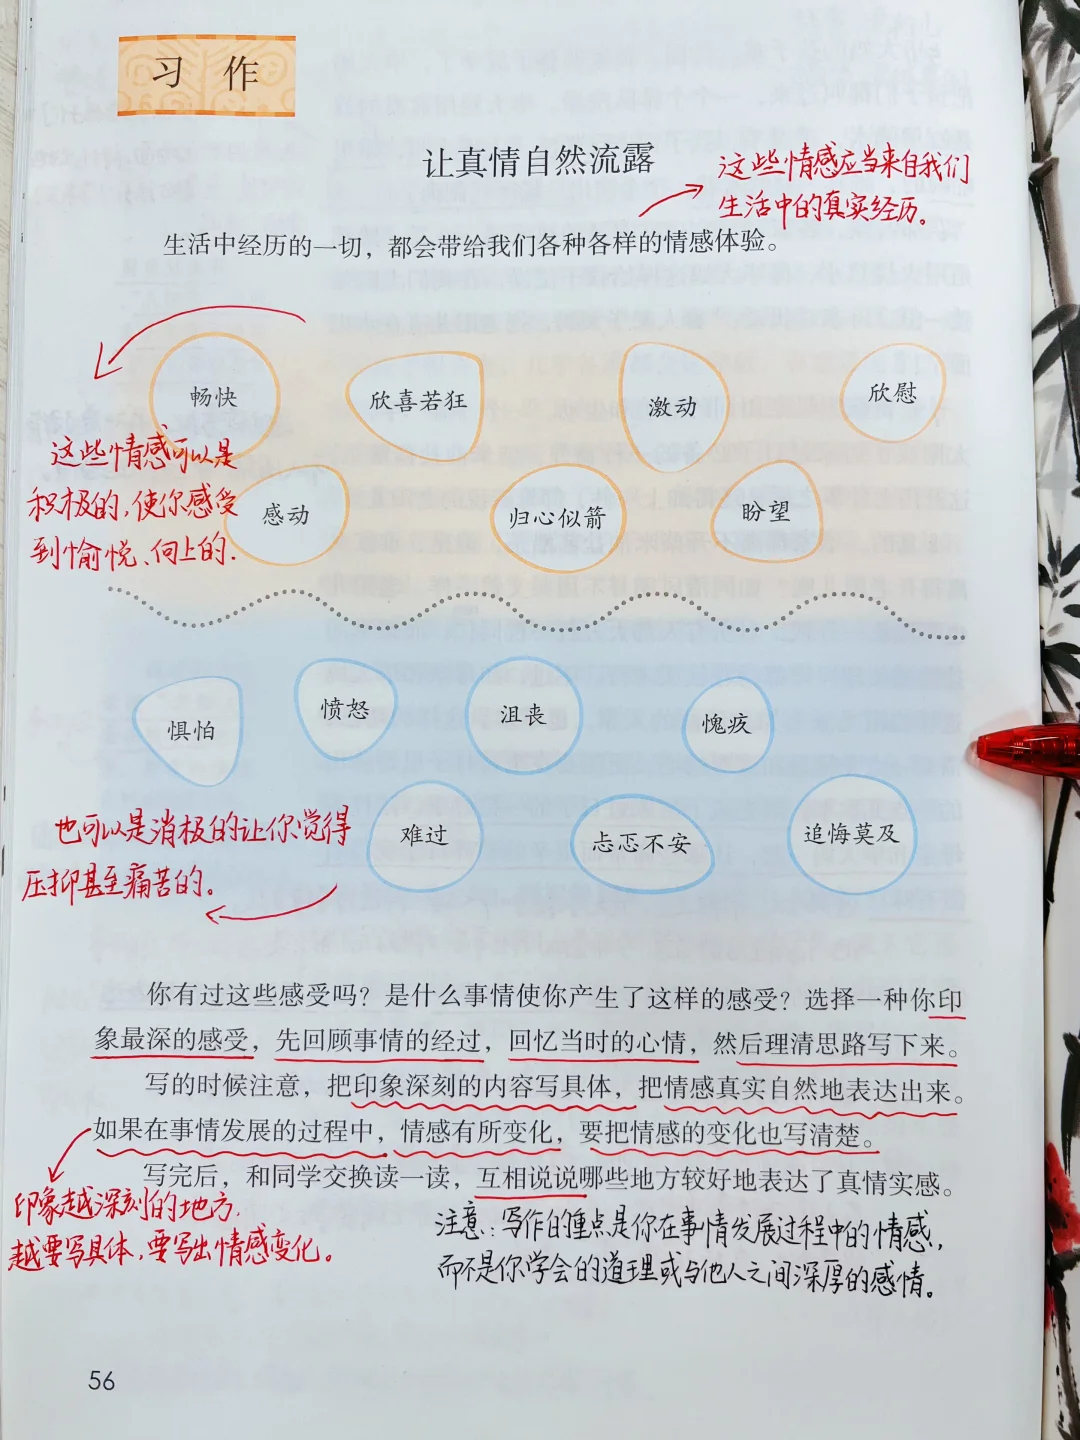 习 作
让真情自然流露
这些情感应当来自我们
生活中的真实经历。
生活中经历的一切，都会带给我们各种各样的情感体验。
畅快
欣喜若狂
激动
欣慰
这些情感可以是
积极的，使你感受
到愉悦、向上的.
感动
归心似箭
盼望
惧怕
愤怒
沮丧
愧疚
也可以是消极的让你觉得
压抑甚至痛苦的。
难过
忐忑不安
追悔莫及
你有过这些感受吗？是什么事情使你产生了这样的感受？选择一种你印
象最深的感受，先回顾事情的经过，回忆当时的心情，然后理清思路写下来。
写的时候注意，把印象深刻的内容写具体，把情感真实自然地表达出来。
如果在事情发展的过程中，情感有所变化，要把情感的变化也写清楚。
写完后，和同学交换读一读，互相说说哪些地方较好地表达了真情实感。
印象越深刻的地方，
越要写具体，要写出情感变化。
注意：写作的重点是你在事情发展过程中的情感，
而不是你学会的道理或与他人之间深厚的感情。
56